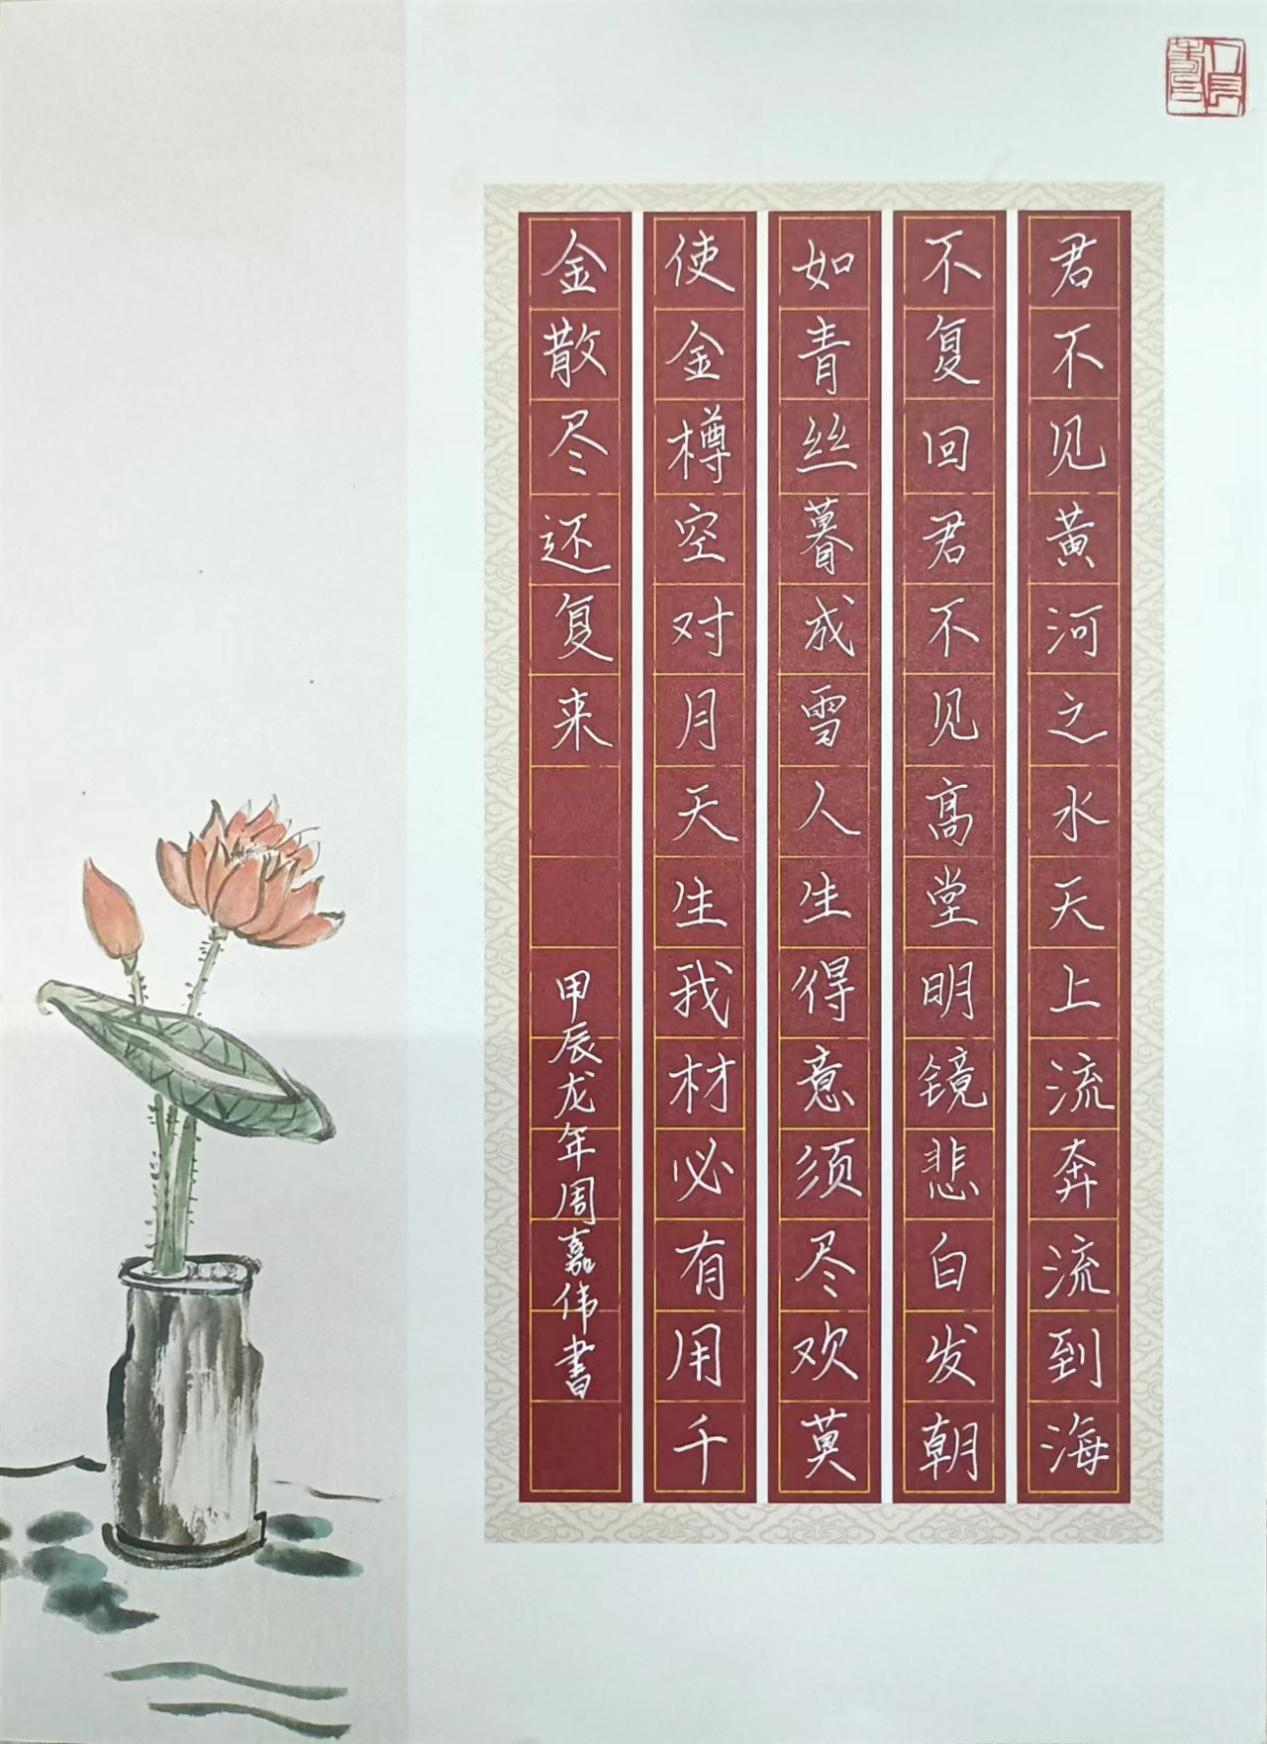 君不见黄河之水天上流奔流到海
不复回君不见高堂明镜悲白发朝
如青丝暮成雪人生得意须尽欢莫
使金樽空对月天生我材必有用千
金散尽还复来
甲辰龙年周嘉伟书